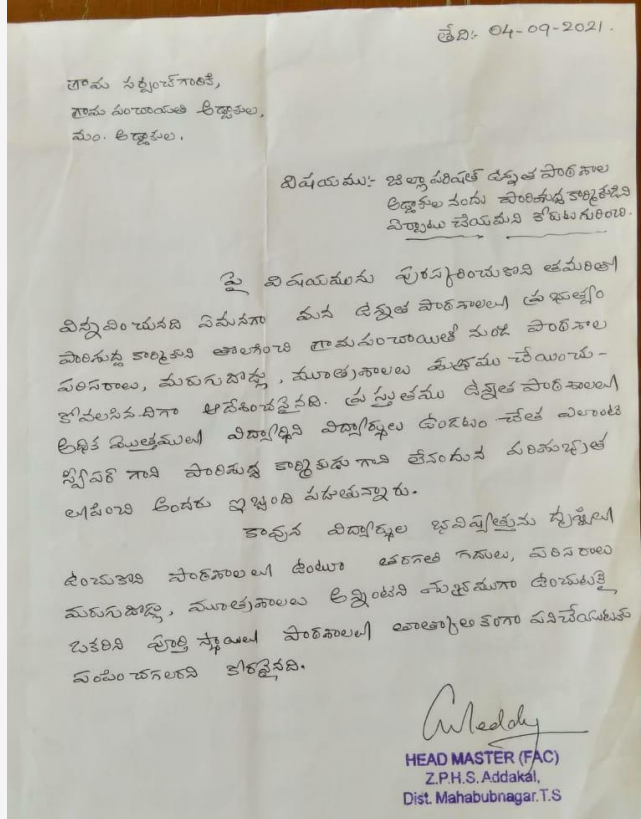 తేది:- 04-09-2021.
గ్రామ సర్పంచ్ గారికి,
గ్రామ పంచాయతి అడ్డాకుల,
మం. అడ్డాకుల.
విషయము:- జిల్లా పరిషత్ ఉన్నత పాఠశాల
అడ్డాకుల నందు పారిశుద్ధ కార్మికుడిని
ఏర్పాటు చేయమని కోరుట గురించి.
పై విషయమును పురస్కరించుకొని తమరితో
విన్నవించునది ఏమనగా మన ఉన్నత పాఠశాలలో ప్రభుత్వం
పారిశుద్ధ కార్మికుని తొలగించి గ్రామపంచాయితీ నుండి పాఠశాల
పరిసరాలు, మరుగుదొడ్లు, మూత్రశాలలు శుభ్రము చేయించు-
కోవలసినదిగా ఆదేశించనైనది. ప్రస్తుతము ఉన్నత పాఠశాలలో
అధిక మొత్తములో విద్యార్థిని విద్యార్థులు ఉండటం చేత ఎలాంటి
స్వీపర్ గాని పారిశుద్ధ కార్మికుడు గాని లేనందున పరిశుభ్రత
లోపించి అందరు ఇబ్బంది పడుతున్నారు.
కావున విద్యార్థుల భవిష్యత్తును దృష్టిలో
ఉంచుకొని పాఠశాలలో ఉంటూ తరగతి గదులు, పరిసరాలు
మరుగుదొడ్లు, మూత్రశాలలు అన్నింటిని శుభ్రముగా ఉంచుటకై
ఒకరిని పూర్తి స్థాయిలో పాఠశాలలో తాత్కాలికంగా పనిచేయుటకు
పంపించగలరని కోరనైనది.
HEAD MASTER (FAC)
Z.P.H.S. Addakal,
Dist. Mahabubnagar.T.S